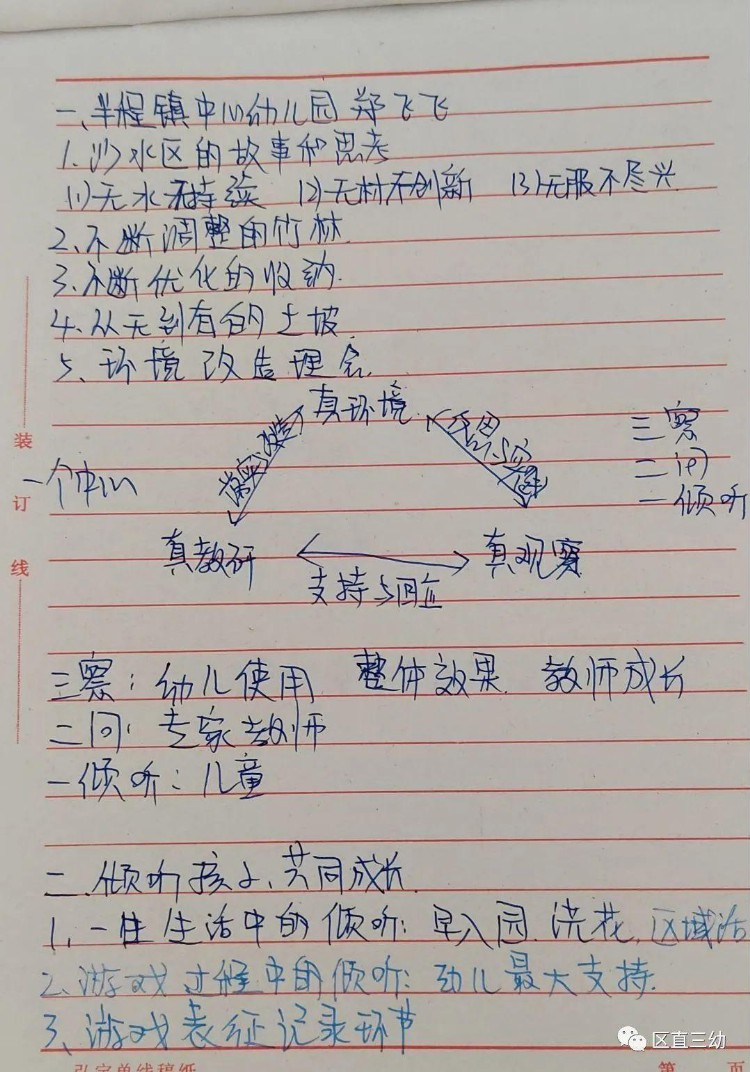 一、半程镇中心幼儿园 郑飞飞
1.沙水区的故事和思考
(1)无水不持续 (2)无材不创新 (3)无服不尽兴
2、不断调整的竹林.
3、不断优化的收纳.
4、从无到有的土坡.
5、环境改造理念.
真环境
三察
二问
一倾听
一个中心
真教研
真观察
支持与回应
装
订
线
三察: 幼儿使用 整体效果. 教师成长
二问: 专家教师
一倾听: 儿童
二.倾听孩子、共同成长.
1.一日生活中的倾听: 早入园.浇花.区域活
2.游戏过程中的倾听: 幼儿最大支持.
3、游戏表征记录环节
区直三幼